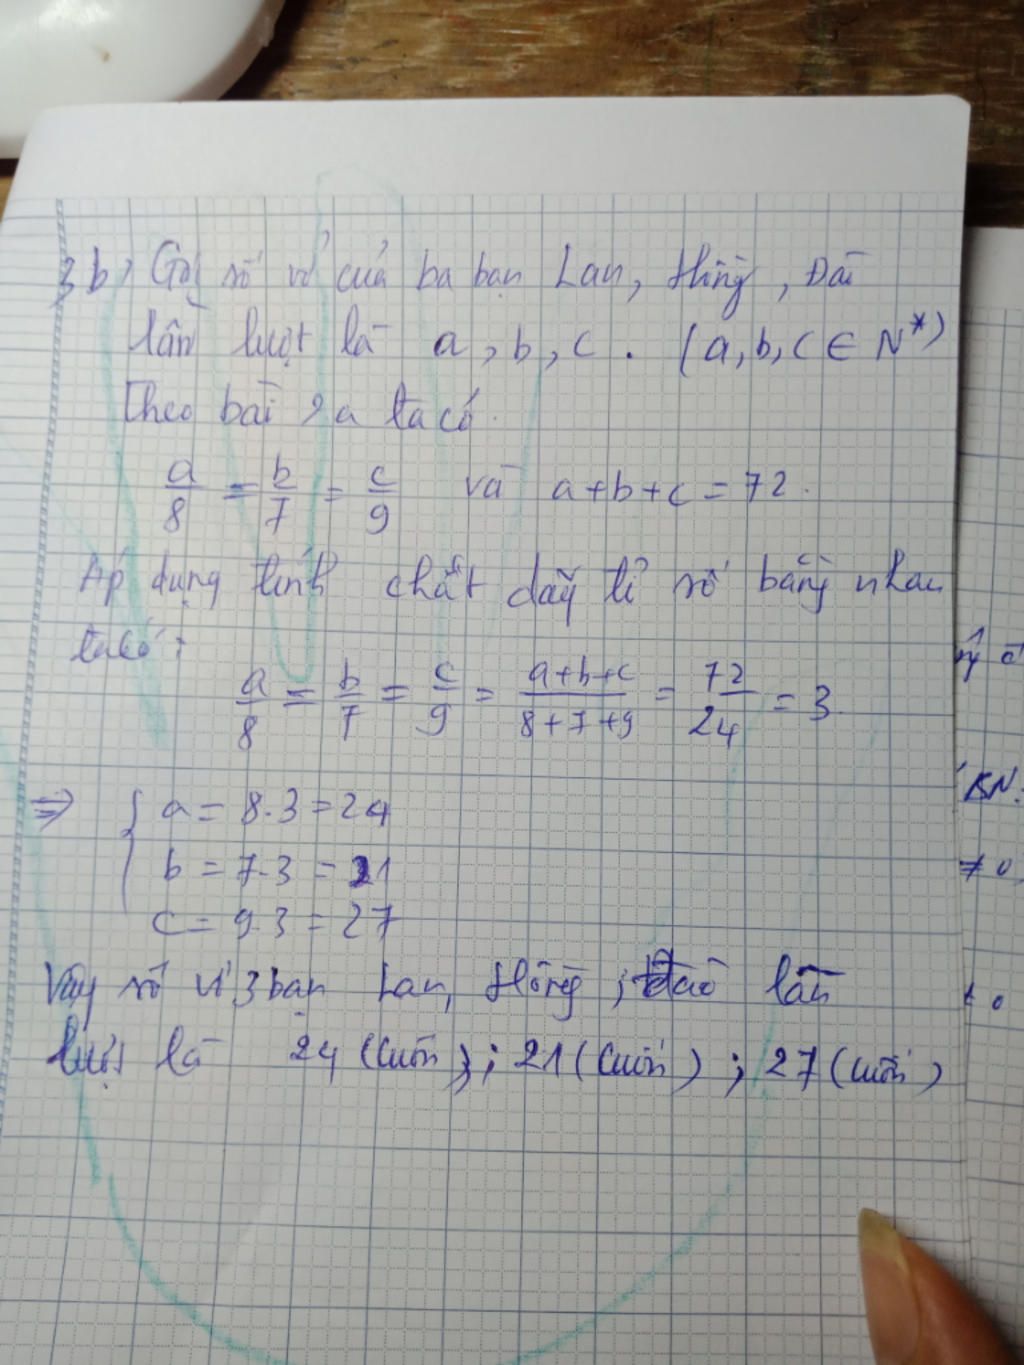 3b) Gọi số vở của ba bạn Lan, Hồng, Đào
lần lượt là a, b, c. (a, b, c ∈ N*)
Theo bài ra ta có.
a/8 = b/7 = c/9 và a+b+c = 72.
Áp dụng tính chất dãy tỉ số bằng nhau
ta có:
a/8 = b/7 = c/9 = (a+b+c)/(8+7+9) = 72/24 = 3.
⇒ { a = 8.3 = 24
b = 7.3 = 21
c = 9.3 = 27
Vậy số vở 3 bạn Lan, Hồng; Đào lần
lượt là 24 (cuốn); 21 (cuốn); 27 (cuốn)
KN:
≠ 0
≠ 0